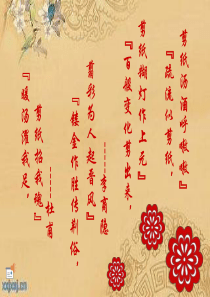 『暖汤濯我足，
剪纸招我魂』
-----杜甫
『镂金作胜传荆俗，
剪彩为人起晋风』
-----李商隐
『百般变化剪出来，
剪纸糊灯作上元』
『疏流似剪纸，
剪纸沥酒呼嗷嗷』